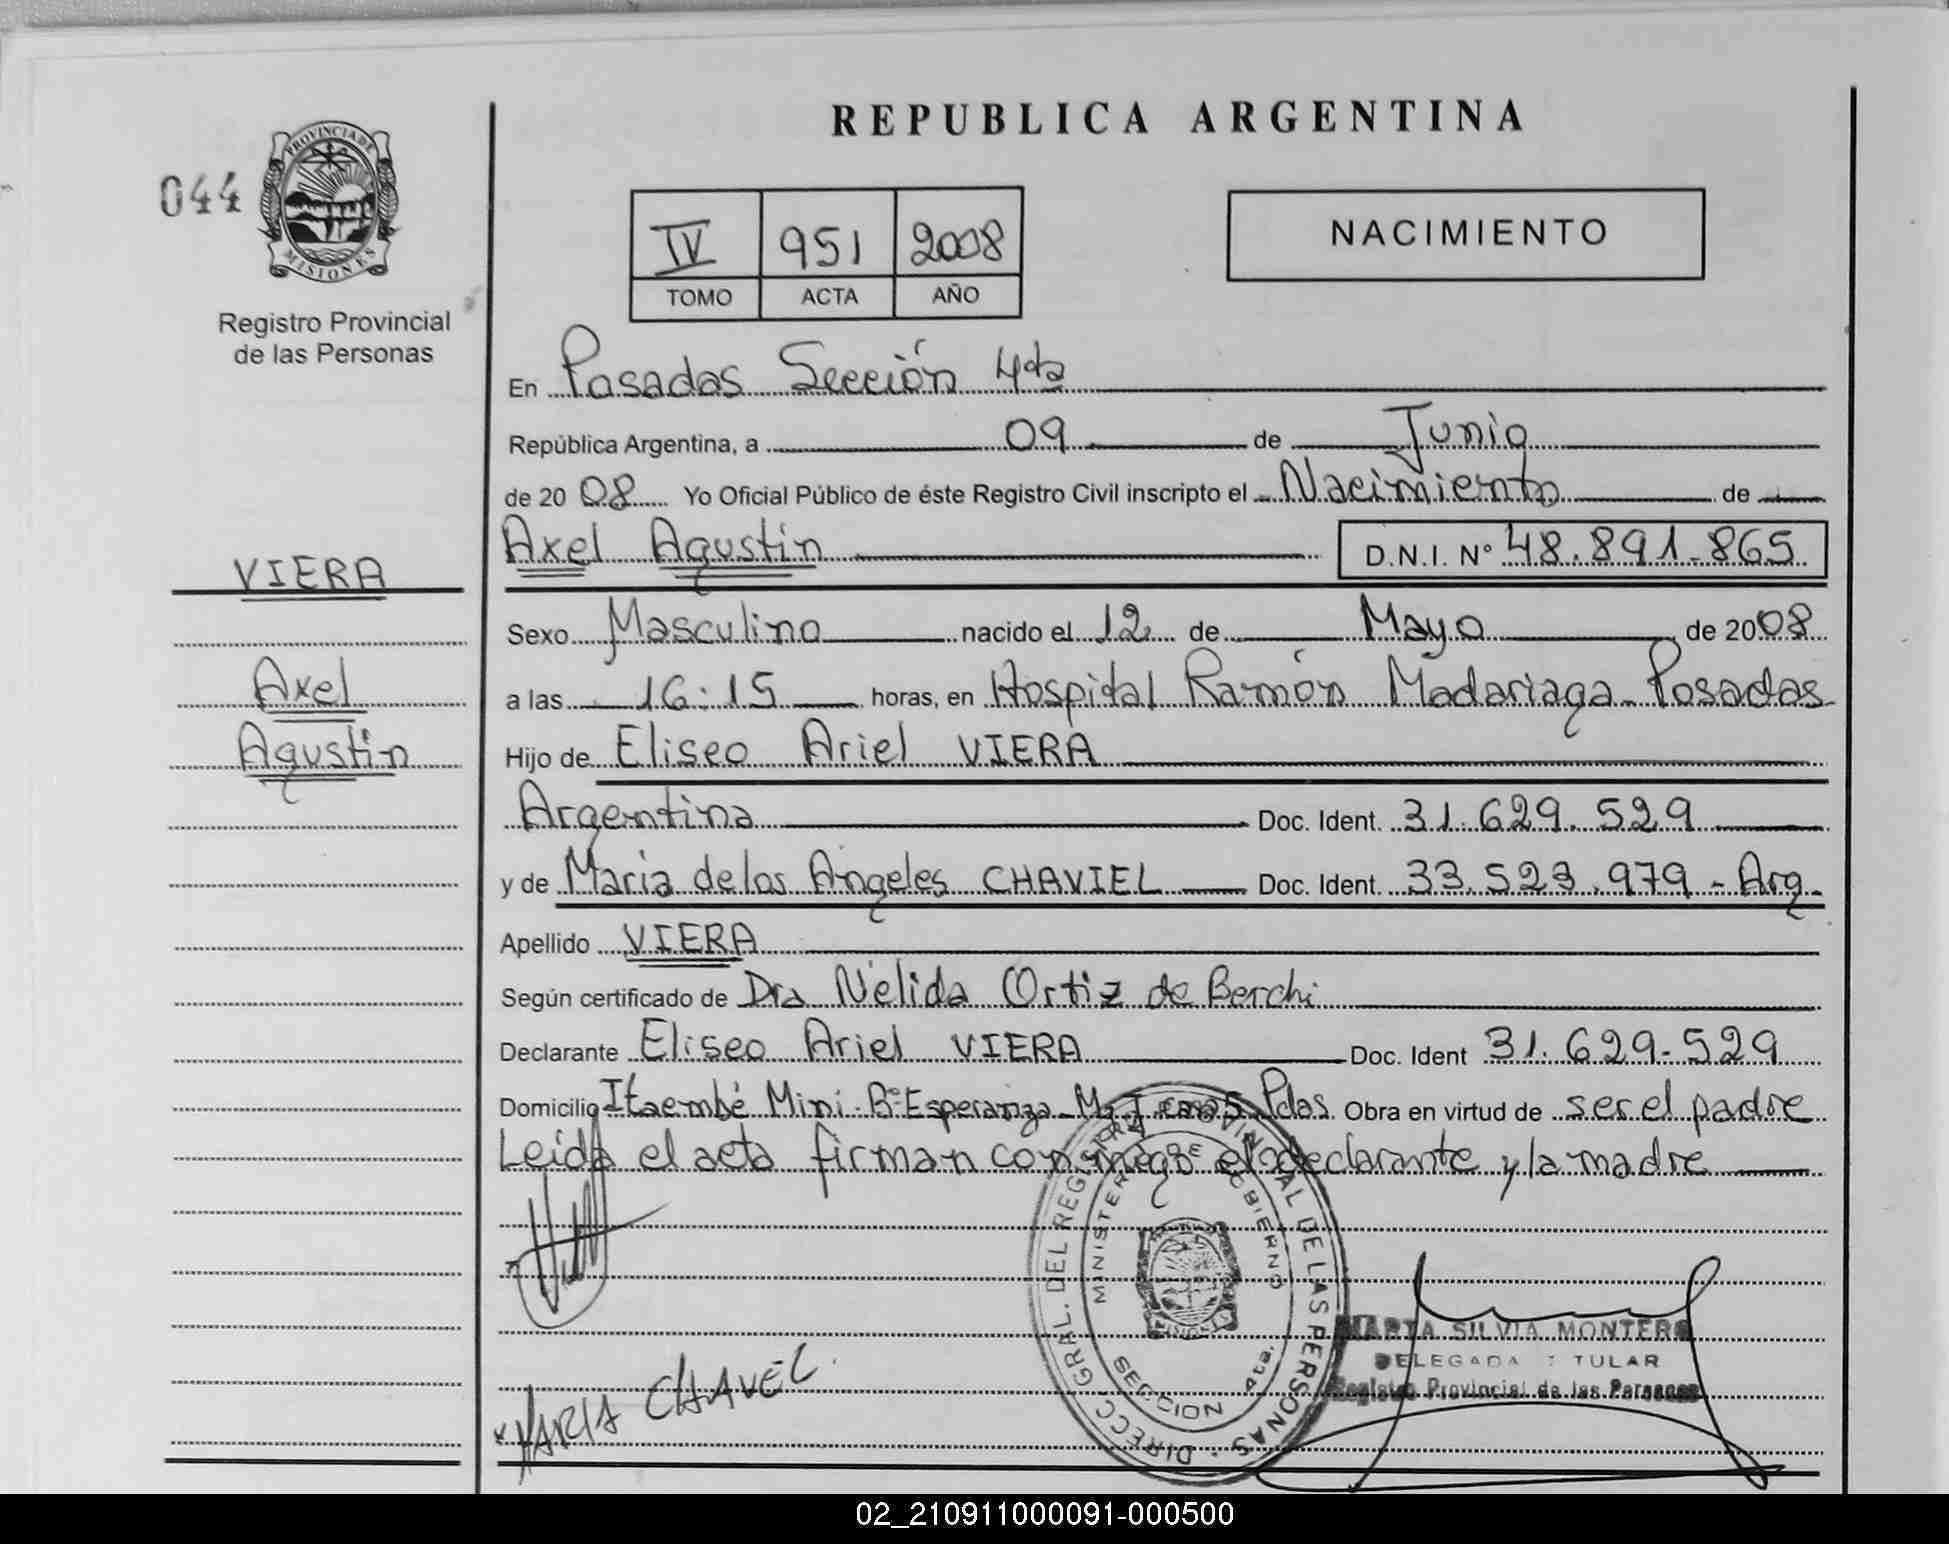 REPUBLICA ARGENTINA
044
PROVINCIA DE
MISIONES
Registro Provincial
de las Personas
IV 951 2008
TOMO ACTA AÑO
NACIMIENTO
En Posadas Sección 4ta
República Argentina, a 09 de Junio
de 20 08 Yo Oficial Público de éste Registro Civil inscripto el Nacimiento de
Axel Agustin D.N.I. N° 48.891.865
VIERA
Axel
Agustin
Sexo Masculino nacido el 12 de Mayo de 2008
a las 16:15 horas, en Hospital Ramón Madariaga - Posadas
Hijo de Eliseo Ariel VIERA
Argentina Doc. Ident. 31.629.529
y de Maria de los Angeles CHAVIEL Doc. Ident. 33.523.979 - Arg.
Apellido VIERA
Según certificado de Dra Nélida Ortiz de Berchi
Declarante Eliseo Ariel VIERA Doc. Ident 31.629.529
Domicilio Itaembé Mini. B° Esperanza Mz J casa 5 Pdas. Obra en virtud de ser el padre
Leída el acta firman conmigo el declarante y la madre
DIRECC. GRAL. DEL REGISTRO PROVINCIAL DE LAS PERSONAS
MINISTERIO DE GOBIERNO
SECCION 4ta.
MARTA SILVIA MONTERO
DELEGADA TITULAR
Registro Provincial de las Personas
MARIA CHAVEL.
02_210911000091-000500